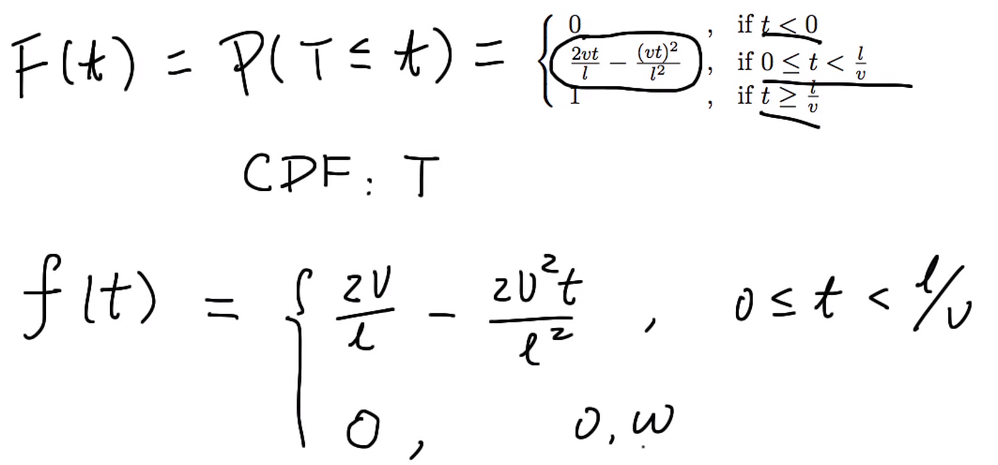 F(t) = P(T ≤ t) = { 0 , if t < 0
2vt/l − (vt)²/l² , if 0 ≤ t < l/v
1 , if t ≥ l/v
CDF: T
f(t) = { 2v/l − 2v²t/l² , 0 ≤ t < l/v
0 , o.w.